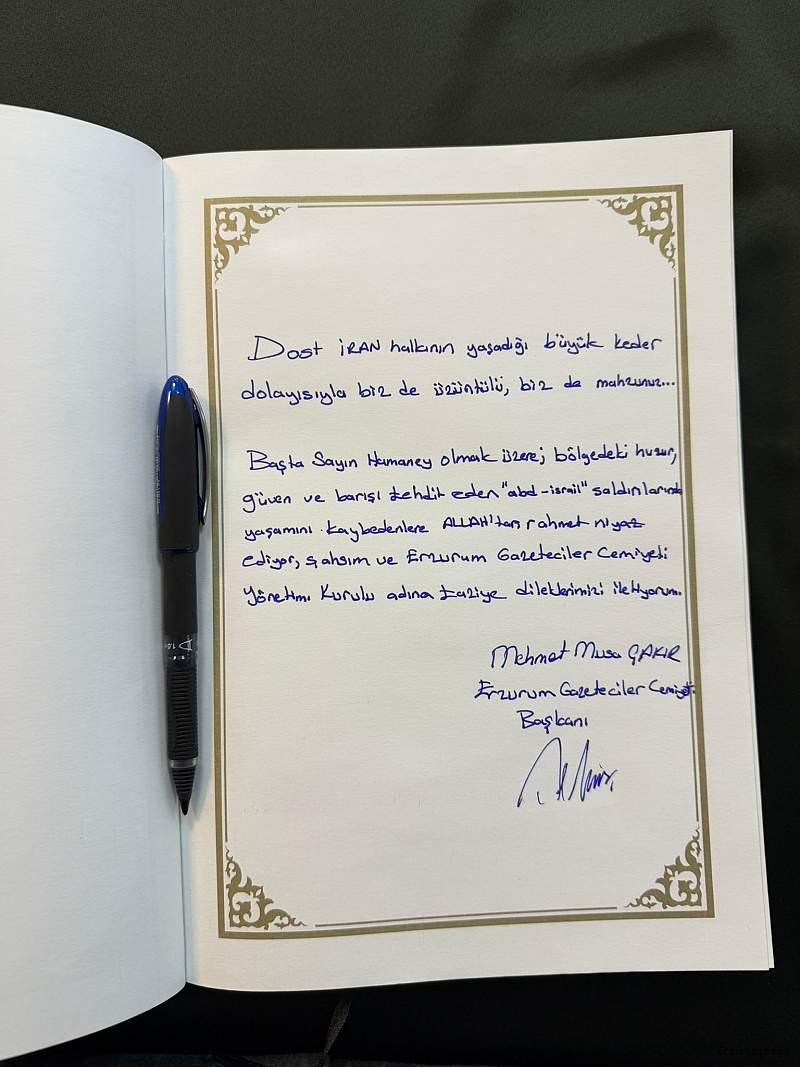 Dost İRAN halkının yaşadığı büyük keder
dolayısıyla biz de üzüntülü, biz de mahzunuz...
Başta Sayın Hamaney olmak üzere; bölgedeki huzur,
güven ve barışı tehdit eden "abd-israil" saldırılarında
yaşamını kaybedenlere ALLAH'tan rahmet niyaz
ediyor, şahsım ve Erzurum Gazeteciler Cemiyeti
Yönetim Kurulu adına taziye dileklerimizi iletiyorum.
Mehmet Musa ÇAKIR
Erzurum Gazeteciler Cemiyeti
Başkanı
1.0